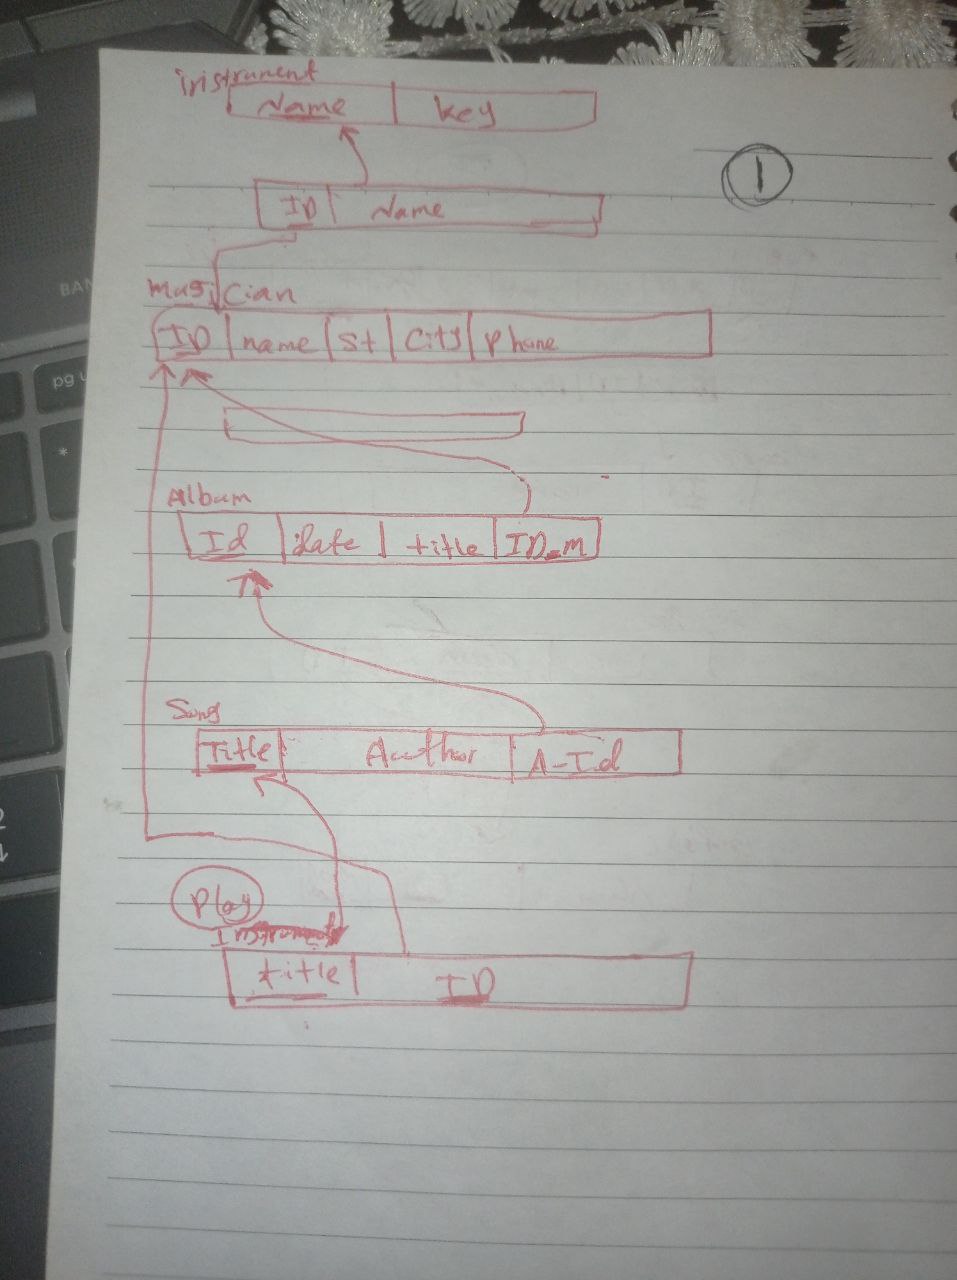 instrument
Name key
1
ID Name
Musician
ID name St City Phone
Album
Id date title ID_m
Song
Title Author A-Id
Play
title ID
BAN
pg u
*